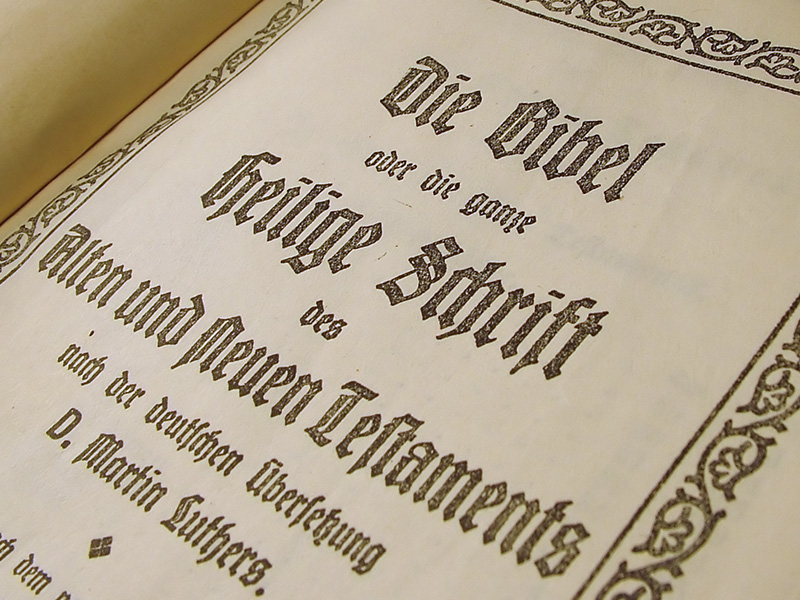 Die Bibel
oder die ganze
Heilige Schrift
des
Alten und Neuen Testaments
nach der deutschen Übersetzung
D. Martin Luthers.
dem